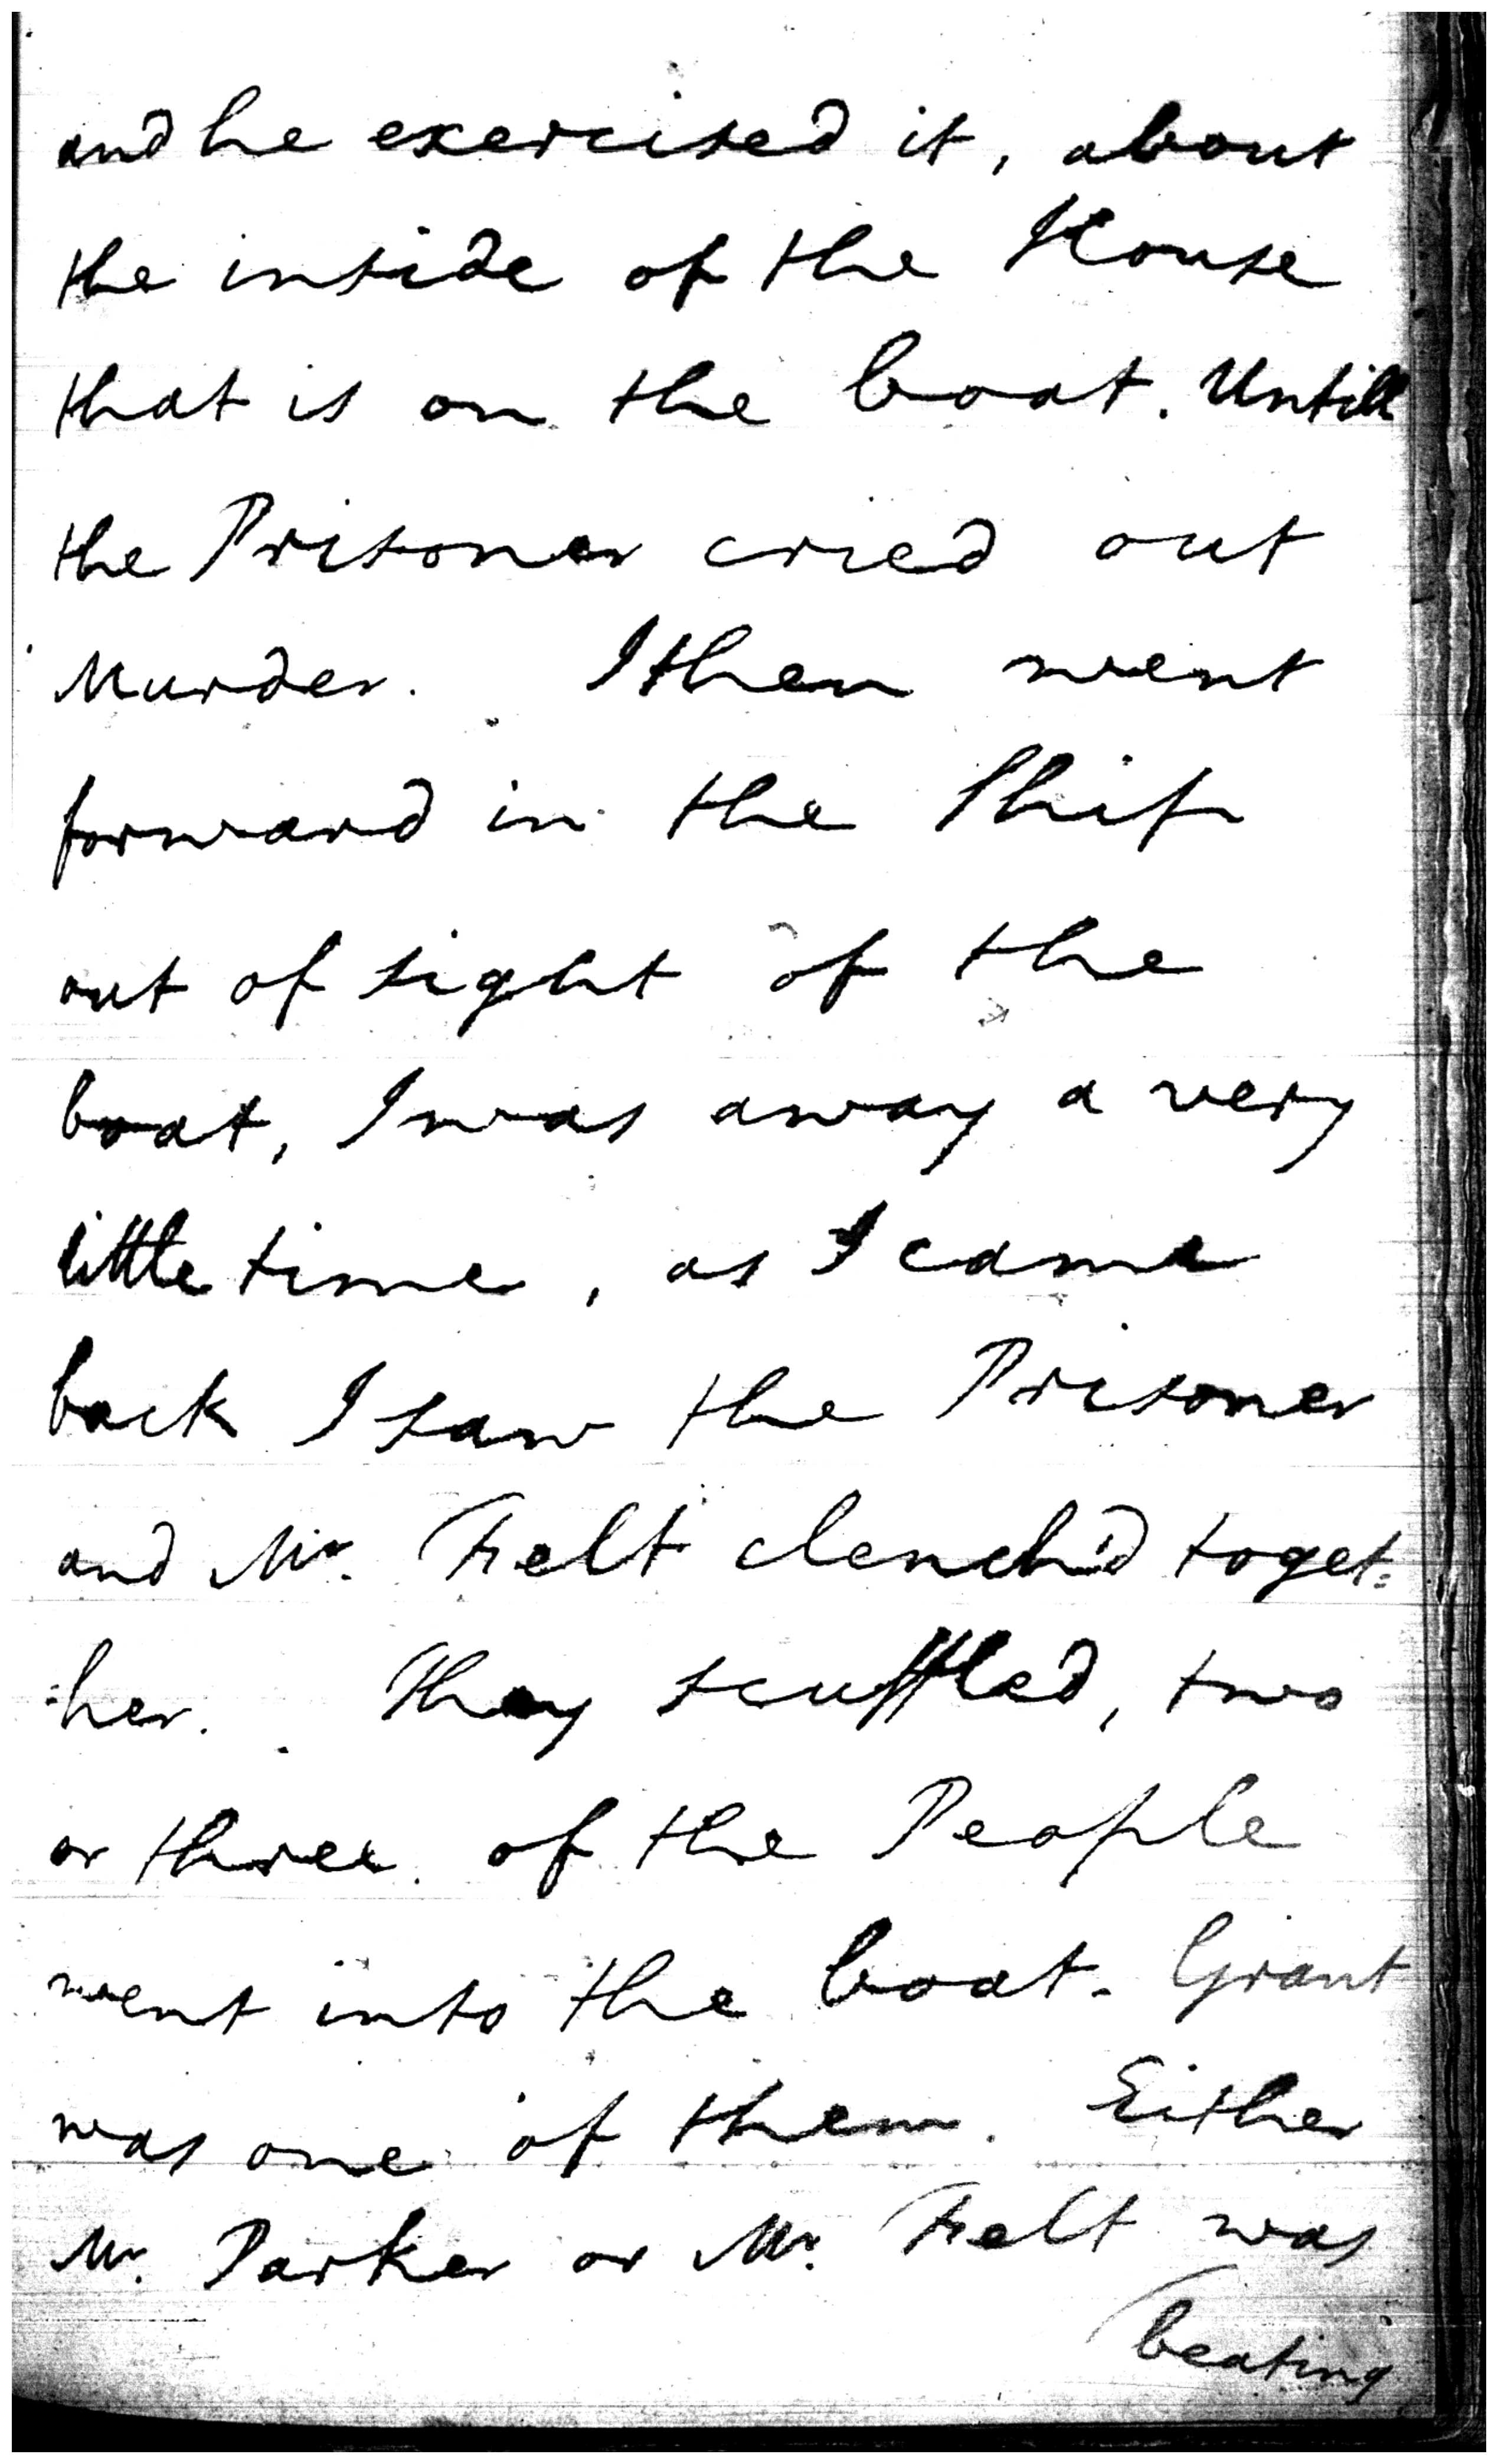 and he exercised it, about
the inside of the House
that is on the boat. Untill
the Prisoner cried out
Murder. I then went
forward in the Ship
out of sight of the
boat, I was away a very
little time, as I came
back I saw the Prisoner
and Mr. Felt clench'd toget=
=her. They scuffled, two
or three of the People
went into the boat. Grant
was one of them. Either
Mr. Parker or Mr. Felt was
beating